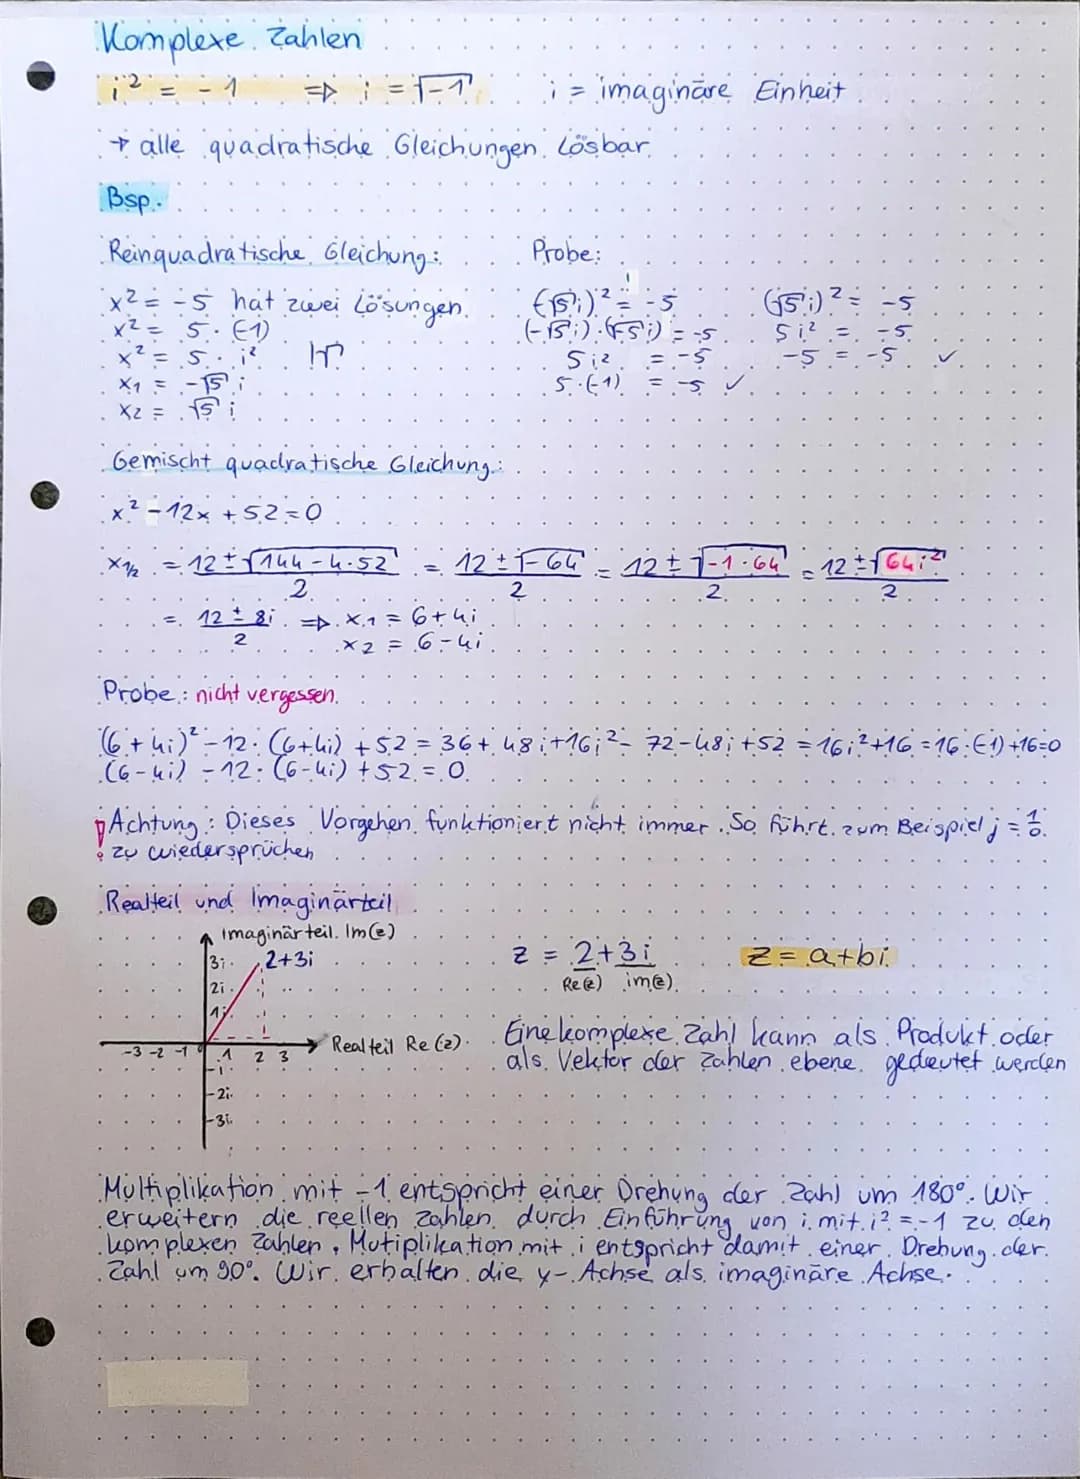 Komplexe Zahlen
i² = -1 ⇒ i = √-1 i = imaginäre Einheit
→ alle quadratische Gleichungen Lösbar
Bsp.
Reinquadratische Gleichung: Probe:
x² = -5 hat zwei Lösungen. (-√5i)² = -5 (√5i)² = -5
x² = 5·(-1) (-√5i)·(-√5i) = -5 5i² = -5
x² = 5·i² |√ 5i² = -5 -5 = -5 ✓
x₁ = -√5 i 5·(-1) = -5 ✓
x₂ = √5 i
Gemischt quadratische Gleichung:
x² - 12x + 52 = 0
x½ = 12 ± √144 - 4·52 / 2 = 12 ± √-64 / 2 = 12 ± √-1·64 / 2 = 12 ± √64i² / 2
= 12 ± 8i / 2 ⇒ x₁ = 6+4i
x₂ = 6-4i
Probe: nicht vergessen
(6+4i)² - 12·(6+4i) + 52 = 36 + 48i + 16i² - 72 - 48i + 52 = 16i² + 16 = 16·(-1) + 16 = 0
(6-4i) - 12·(6-4i) + 52 = 0
! Achtung: Dieses Vorgehen funktioniert nicht immer. So führt zum Beispiel j = 1/0
zu wiedersprüchen
Realteil und Imaginärteil
Imaginärteil Im(z)
3i 2+3i z = 2+3i z = a+bi
2i Re(z) im(z)
1i
-3 -2 -1 0 1 2 3 Realteil Re(z)
-i
-2i
-3i
Eine komplexe Zahl kann als Produkt oder
als Vektor der Zahlen ebene gedeutet werden
Multiplikation mit -1 entspricht einer Drehung der Zahl um 180°. Wir
erweitern die reellen Zahlen durch Einführung von i mit i² = -1 zu den
komplexen Zahlen. Mutiplikation mit i entspricht damit einer Drehung der
Zahl um 90°. Wir erhalten die y-Achse als imaginäre Achse.